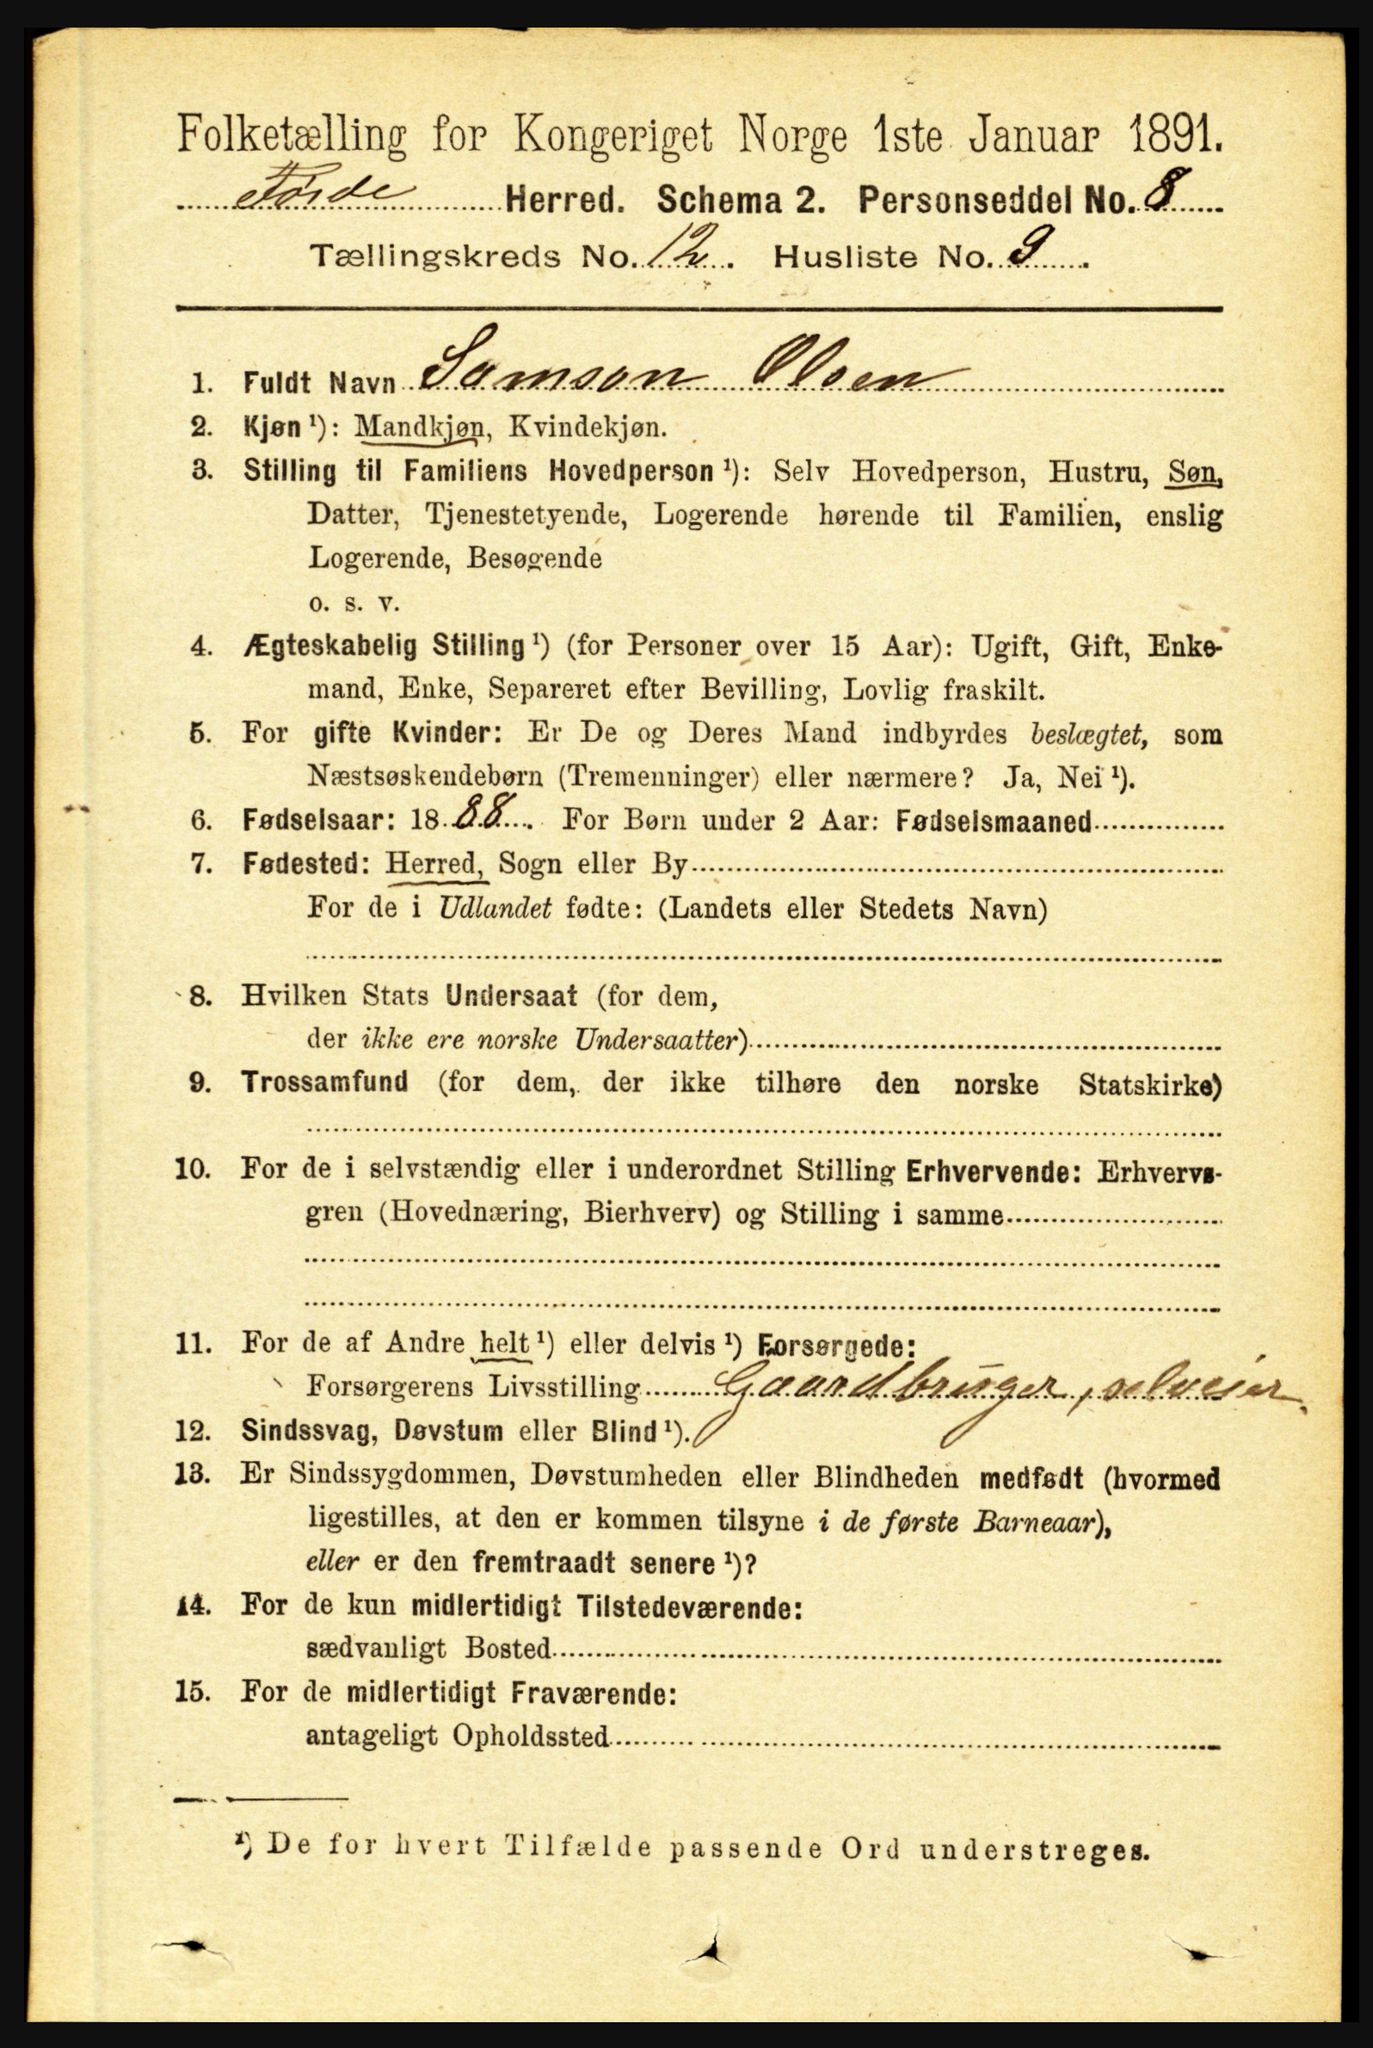 Folketælling for Kongeriget Norge 1ste Januar 1891.
Førde Herred. Schema 2. Personseddel No. 8
Tællingskreds No. 12. Husliste No. 9.
1. Fuldt Navn Samson Olsen
2. Kjøn ¹): Mandkjøn, Kvindekjøn.
3. Stilling til Familiens Hovedperson ¹): Selv Hovedperson, Hustru, Søn,
Datter, Tjenestetyende, Logerende hørende til Familien, enslig
Logerende, Besøgende
o. s. v.
4. Ægteskabelig Stilling ¹) (for Personer over 15 Aar): Ugift, Gift, Enke-
mand, Enke, Separeret efter Bevilling, Lovlig fraskilt.
5. For gifte Kvinder: Er De og Deres Mand indbyrdes beslægtet, som
Næstsøskendebørn (Tremenninger) eller nærmere? Ja, Nei ¹).
6. Fødselsaar: 1888. For Børn under 2 Aar: Fødselsmaaned
7. Fødested: Herred, Sogn eller By
For de i Udlandet fødte: (Landets eller Stedets Navn)
8. Hvilken Stats Undersaat (for dem,
der ikke ere norske Undersaatter)
9. Trossamfund (for dem, der ikke tilhøre den norske Statskirke)
10. For de i selvstændig eller i underordnet Stilling Erhvervende: Erhvervs-
gren (Hovednæring, Bierhverv) og Stilling i samme
11. For de af Andre helt ¹) eller delvis ¹) Forsørgede:
Forsørgerens Livsstilling Gaardbruger, selveier.
12. Sindssvag, Døvstum eller Blind ¹).
13. Er Sindssygdommen, Døvstumheden eller Blindheden medfødt (hvormed
ligestilles, at den er kommen tilsyne i de første Barneaar),
eller er den fremtraadt senere ¹)?
14. For de kun midlertidigt Tilstedeværende:
sædvanligt Bosted
15. For de midlertidigt Fraværende:
antageligt Opholdssted
¹) De for hvert Tilfælde passende Ord understreges.